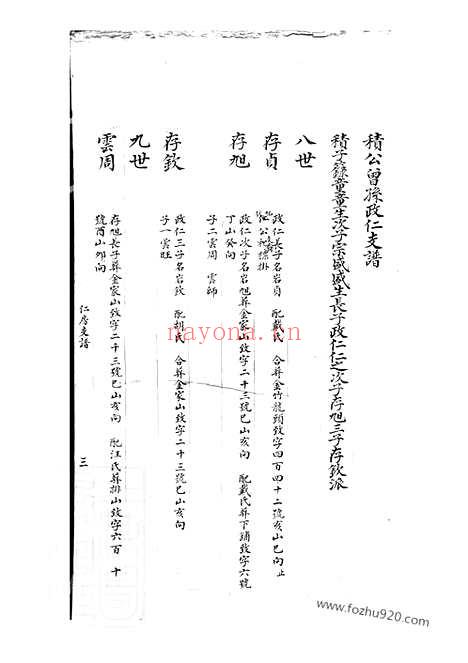 積公曾孫政仁支譜
積子籙童童生次子宗盛盛生長子政仁仁之次子存旭三子存欽派
八世
存貞
政仁長子名岩貞　配戴氏　合葬金竹龍頭致字四百四十二號亥山巳向止
公祀標掛
存旭
政仁次子名岩旭葬金家山致字二十三號巳山亥向　配戴氏葬下鋪致字六號
丁山癸向
子二雲周　雲師
存欽
政仁三子名岩欽　配胡氏　合葬金家山致字二十三號巳山亥向
子一雲旺
九世
雲周
存旭長子葬金家山致字二十三號巳山亥向　配汪氏葬排山致字六百　十
號酉山卯向
仁房支譜
三
nayona.cn
www.fozhu920.com